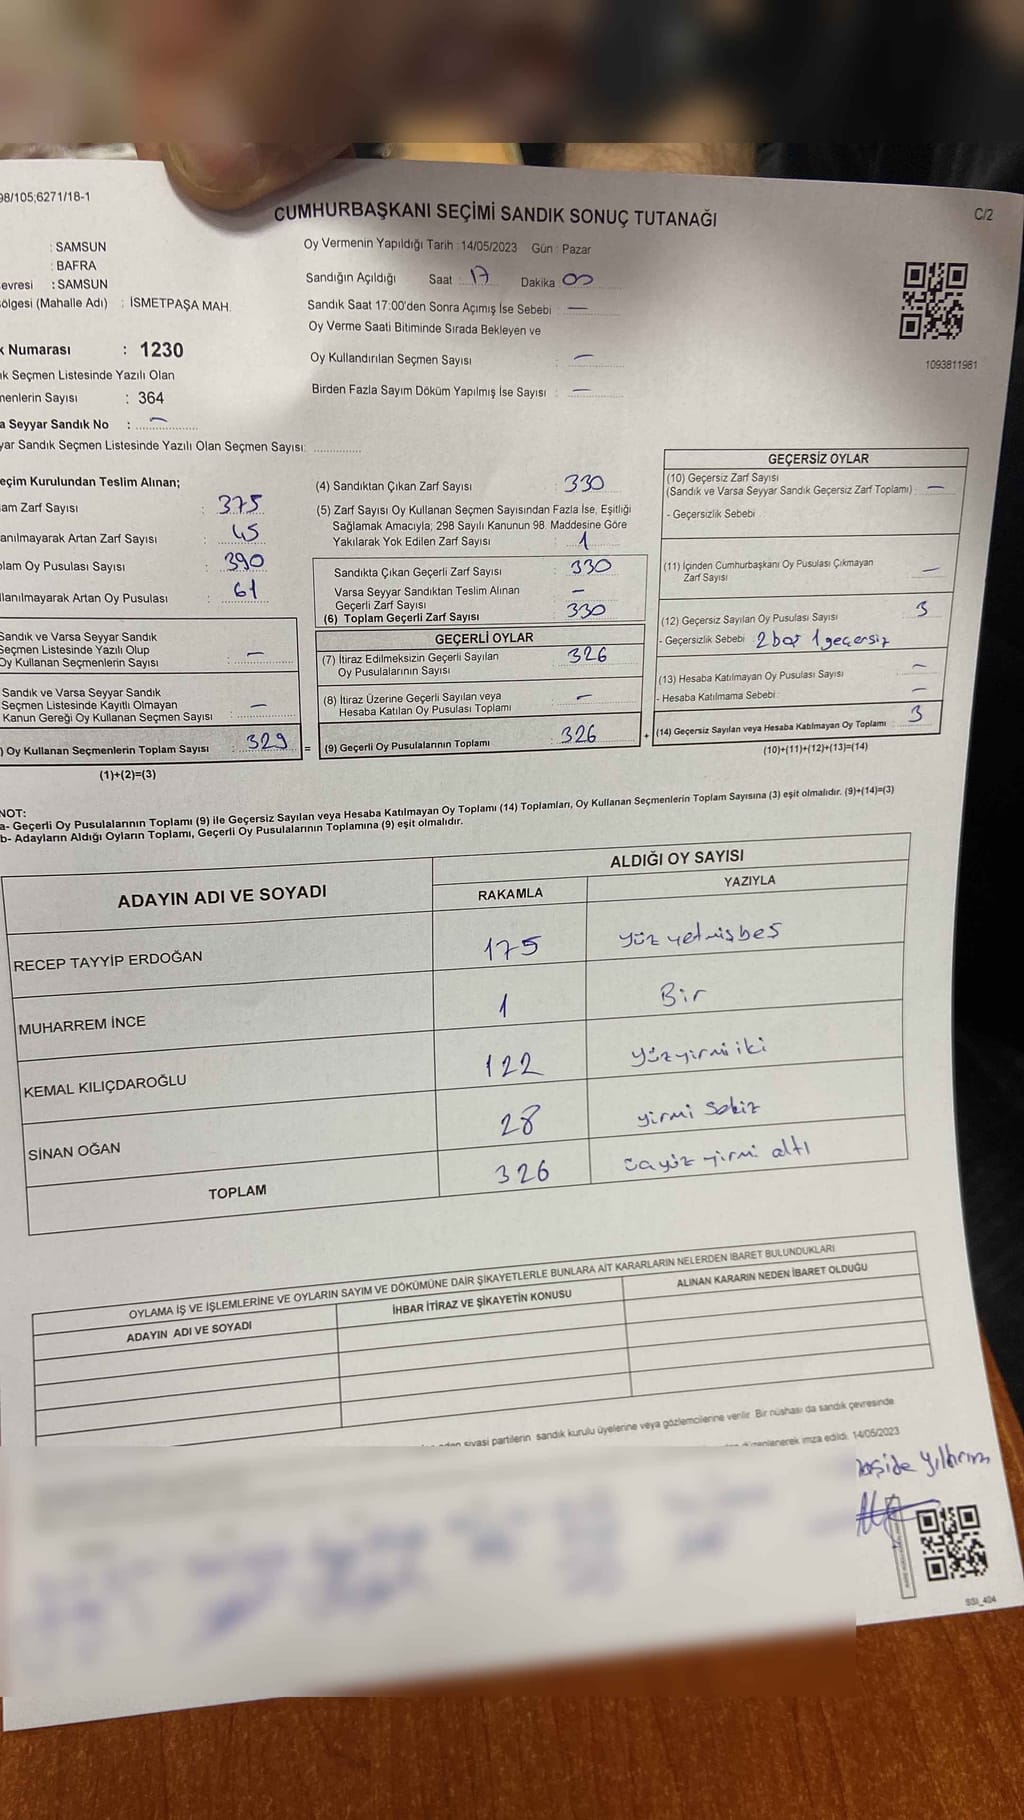 98/105;6271/18-1
C/2
CUMHURBAŞKANI SEÇİMİ SANDIK SONUÇ TUTANAĞI
: SAMSUN
: BAFRA
evresi : SAMSUN
ölgesi (Mahalle Adı) : İSMETPAŞA MAH.
k Numarası : 1230
ık Seçmen Listesinde Yazılı Olan
menlerin Sayısı : 364
a Seyyar Sandık No : —
yar Sandık Seçmen Listesinde Yazılı Olan Seçmen Sayısı:
Oy Vermenin Yapıldığı Tarih : 14/05/2023 Gün : Pazar
Sandığın Açıldığı Saat : 17 Dakika 00
Sandık Saat 17:00'den Sonra Açımış İse Sebebi : —
Oy Verme Saati Bitiminde Sırada Bekleyen ve
Oy Kullandırılan Seçmen Sayısı : —
Birden Fazla Sayım Döküm Yapılmış İse Sayısı : —
1093811981
eçim Kurulundan Teslim Alınan;
am Zarf Sayısı : 375
anılmayarak Artan Zarf Sayısı : 45
plam Oy Pusulası Sayısı : 390
llanılmayarak Artan Oy Pusulası : 61
Sandık ve Varsa Seyyar Sandık
Seçmen Listesinde Yazılı Olup
Oy Kullanan Seçmenlerin Sayısı : —
Sandık ve Varsa Seyyar Sandık
Seçmen Listesinde Kayıtlı Olmayan
Kanun Gereği Oy Kullanan Seçmen Sayısı : —
) Oy Kullanan Seçmenlerin Toplam Sayısı : 329 =
(1)+(2)=(3)
(4) Sandıktan Çıkan Zarf Sayısı : 330
(5) Zarf Sayısı Oy Kullanan Seçmen Sayısından Fazla İse, Eşitliği
Sağlamak Amacıyla; 298 Sayılı Kanunun 98. Maddesine Göre
Yakılarak Yok Edilen Zarf Sayısı : 1
Sandıkta Çıkan Geçerli Zarf Sayısı : 330
Varsa Seyyar Sandıktan Teslim Alınan
Geçerli Zarf Sayısı : —
(6) Toplam Geçerli Zarf Sayısı : 330
GEÇERLİ OYLAR
(7) İtiraz Edilmeksizin Geçerli Sayılan
Oy Pusulalarının Sayısı : 326
(8) İtiraz Üzerine Geçerli Sayılan veya
Hesaba Katılan Oy Pusulası Toplamı : —
(9) Geçerli Oy Pusulalarının Toplamı : 326 +
GEÇERSİZ OYLAR
(10) Geçersiz Zarf Sayısı
(Sandık ve Varsa Seyyar Sandık Geçersiz Zarf Toplamı) : —
- Geçersizlik Sebebi :
(11) İçinden Cumhurbaşkanı Oy Pusulası Çıkmayan
Zarf Sayısı : —
(12) Geçersiz Sayılan Oy Pusulası Sayısı : 3
- Geçersizlik Sebebi : 2 boş 1 geçersiz
(13) Hesaba Katılmayan Oy Pusulası Sayısı : —
- Hesaba Katılmama Sebebi : —
(14) Geçersiz Sayılan veya Hesaba Katılmayan Oy Toplamı : 3
(10)+(11)+(12)+(13)=(14)
NOT:
a- Geçerli Oy Pusulalarının Toplamı (9) ile Geçersiz Sayılan veya Hesaba Katılmayan Oy Toplamı (14) Toplamları, Oy Kullanan Seçmenlerin Toplam Sayısına (3) eşit olmalıdır. (9)+(14)=(3)
b- Adayların Aldığı Oyların Toplamı, Geçerli Oy Pusulalarının Toplamına (9) eşit olmalıdır.
ADAYIN ADI VE SOYADI
ALDIĞI OY SAYISI
RAKAMLA YAZIYLA
RECEP TAYYİP ERDOĞAN 175 yüz yetmişbeş
MUHARREM İNCE 1 Bir
KEMAL KILIÇDAROĞLU 122 yüzyirmi iki
SİNAN OĞAN 28 yirmi sekiz
TOPLAM 326 üçyüz yirmi altı
OYLAMA İŞ VE İŞLEMLERİNE VE OYLARIN SAYIM VE DÖKÜMÜNE DAİR ŞİKAYETLERLE BUNLARA AİT KARARLARIN NELERDEN İBARET BULUNDUKLARI
ADAYIN ADI VE SOYADI İHBAR İTİRAZ VE ŞİKAYETİN KONUSU ALINAN KARARIN NEDEN İBARET OLDUĞU
siyasi partilerin sandık kurulu üyelerine veya gözlemcilerine verilir. Bir nüshası da sandık çevresinde
düzenlenerek imza edildi. 14/05/2023
Yıldırım
SSI_404